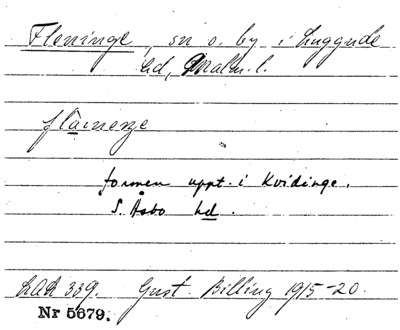 Fleninge, sn o. by i Luggude
hd, Malm. l.
flàinenge
formen uppt. i Kvidinge,
S. Åsbo hd.
LAL 339. Gust. Billing 1915-20.
Nr 5679.